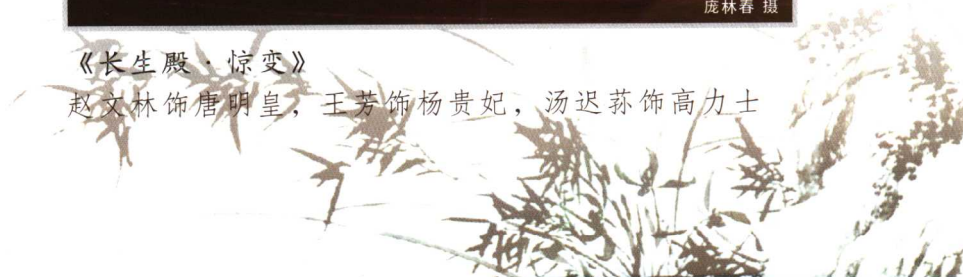 庞林春 摄
《长生殿·惊变》
赵文林饰唐明皇，王芳饰杨贵妃，汤迟荪饰高力士